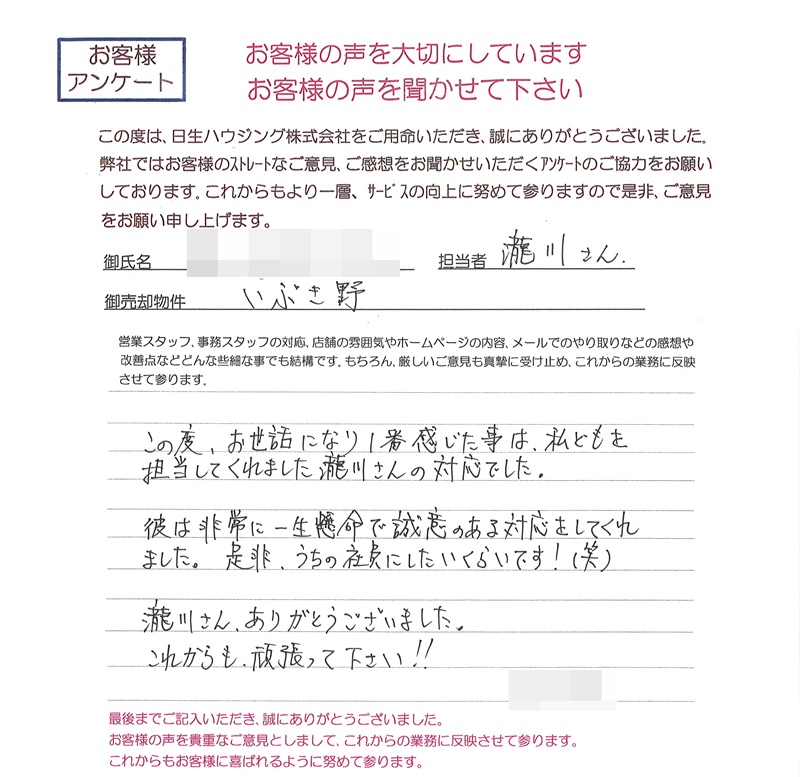 お客様
アンケート
お客様の声を大切にしています
お客様の声を聞かせて下さい
この度は、日生ハウジング株式会社をご用命いただき、誠にありがとうございました。
弊社ではお客様のストレートなご意見、ご感想をお聞かせいただくアンケートのご協力をお願い
しております。これからもより一層、サービスの向上に努めて参りますので是非、ご意見
をお願い申し上げます。
御氏名 担当者 瀧川さん.
御売却物件 いぶき野
営業スタッフ、事務スタッフの対応、店舗の雰囲気やホームページの内容、メールでのやり取りなどの感想や
改善点などどんな些細な事でも結構です。もちろん、厳しいご意見も真摯に受け止め、これからの業務に反映
させて参ります。
この度、お世話になり1番感じた事は、私どもを
担当してくれました瀧川さんの対応でした。
彼は非常に一生懸命で誠意のある対応をしてくれ
ました。是非、うちの社員にしたいくらいです!(笑)
瀧川さん、ありがとうございました。
これからも、頑張って下さい!!
最後までご記入いただき、誠にありがとうございました。
お客様の声を貴重なご意見としまして、これからの業務に反映させて参ります。
これからもお客様に喜ばれるように努めて参ります。